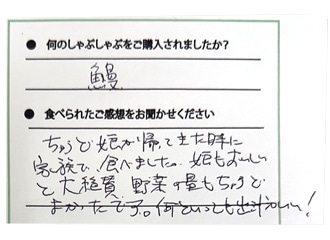 ● 何のしゃぶしゃぶをご購入されましたか？
鰻
● 食べられたご感想をお聞かせください
ちょうど娘が帰って来た時に
家族で、食べました。娘もおいしい
と大絶賛 野菜の量もちょうど
よかったです。何といっても出汁がいい！